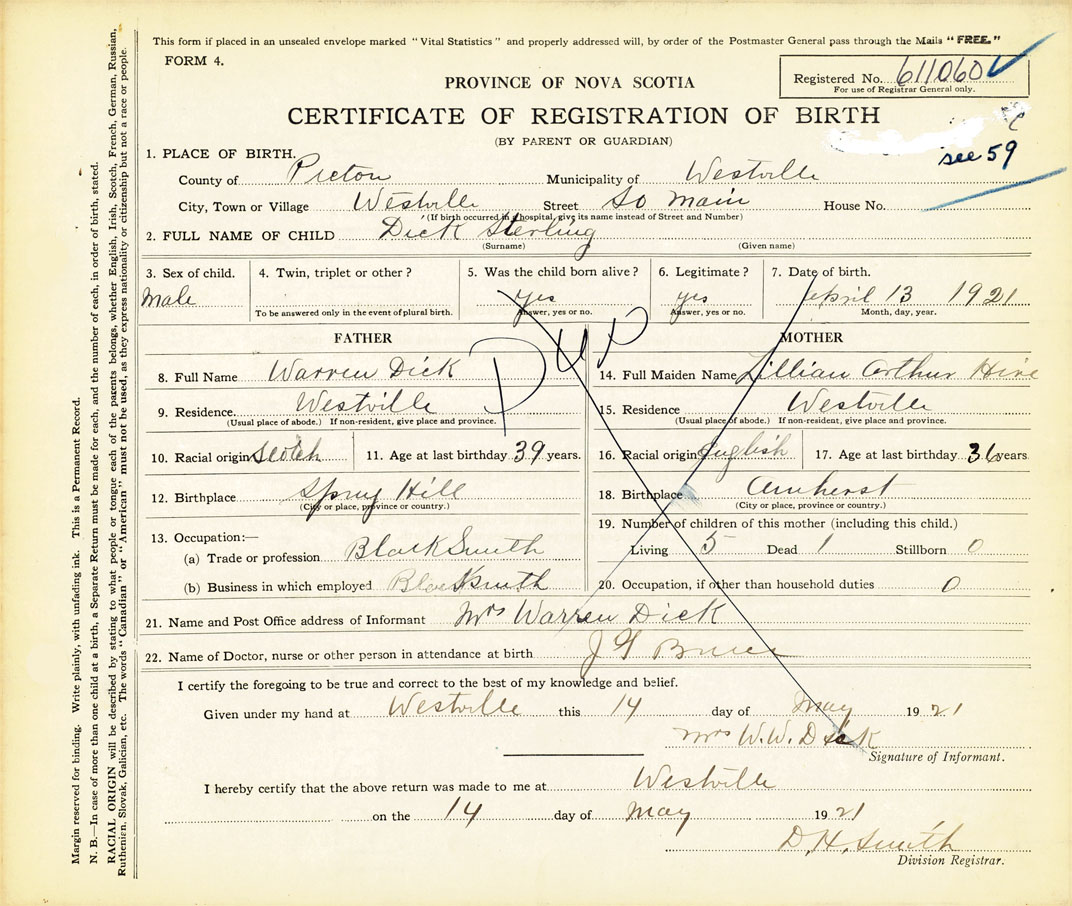 This form if placed in an unsealed envelope marked "Vital Statistics" and properly addressed will, by order of the Postmaster General pass through the Mails "FREE."
FORM 4.
Registered No. 611060
For use of Registrar General only.
PROVINCE OF NOVA SCOTIA
CERTIFICATE OF REGISTRATION OF BIRTH
(BY PARENT OR GUARDIAN)
see 59
1. PLACE OF BIRTH.
County of Pictou Municipality of Westville
City, Town or Village Westville Street So Main House No.
(If birth occurred in a hospital, give its name instead of Street and Number)
2. FULL NAME OF CHILD Dick Sterling
(Surname) (Given name)
3. Sex of child. 4. Twin, triplet or other? 5. Was the child born alive? 6. Legitimate? 7. Date of birth.
Male yes yes April 13 1921
To be answered only in the event of plural birth. Answer, yes or no. Answer, yes or no. Month, day, year.
DUP
FATHER MOTHER
8. Full Name Warren Dick 14. Full Maiden Name Lillian Arthur
9. Residence. Westville 15. Residence Westville
(Usual place of abode.) If non-resident, give place and province. (Usual place of abode.) If non-resident, give place and province.
10. Racial origin Scotch 11. Age at last birthday 39 years. 16. Racial origin English 17. Age at last birthday 36 years
12. Birthplace Spring Hill 18. Birthplace Amherst
(City or place, province or country.) (City or place, province or country.)
13. Occupation:— 19. Number of children of this mother (including this child.)
(a) Trade or profession BlackSmith Living 5 Dead 1 Stillborn 0
(b) Business in which employed BlackSmith 20. Occupation, if other than household duties 0
21. Name and Post Office address of Informant Mrs Warren Dick
22. Name of Doctor, nurse or other person in attendance at birth J
I certify the foregoing to be true and correct to the best of my knowledge and belief.
Given under my hand at Westville this 14 day of May 1921
Mrs W.W. Dick
Signature of Informant.
I hereby certify that the above return was made to me at Westville
on the 14 day of May 1921
D. H. Smith
Division Registrar.
Margin reserved for binding. Write plainly, with unfading ink. This is a Permanent Record.
N. B.—In case of more than one child at a birth, a Separate Return must be made for each, and the number of each, in order of birth, stated.
RACIAL ORIGIN will be described by stating to what people or tongue each of the parents belongs, whether English, Irish, Scotch, French, German, Russian,
Ruthenian, Slovak, Galician, etc. The words "Canadian" or "American" must not be used, as they express nationality or citizenship but not a race or people.